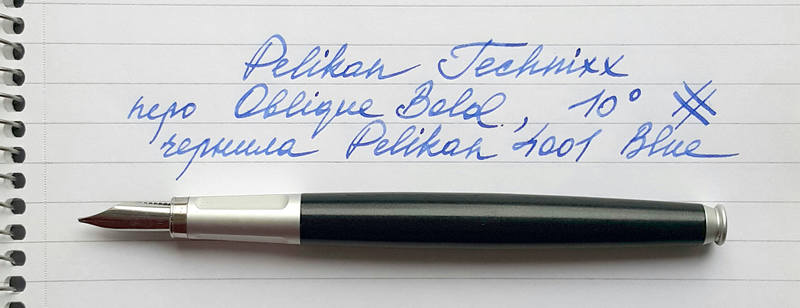 Pelikan Technixx
перо Oblique Bold, 10°
чернила Pelikan 4001 Blue